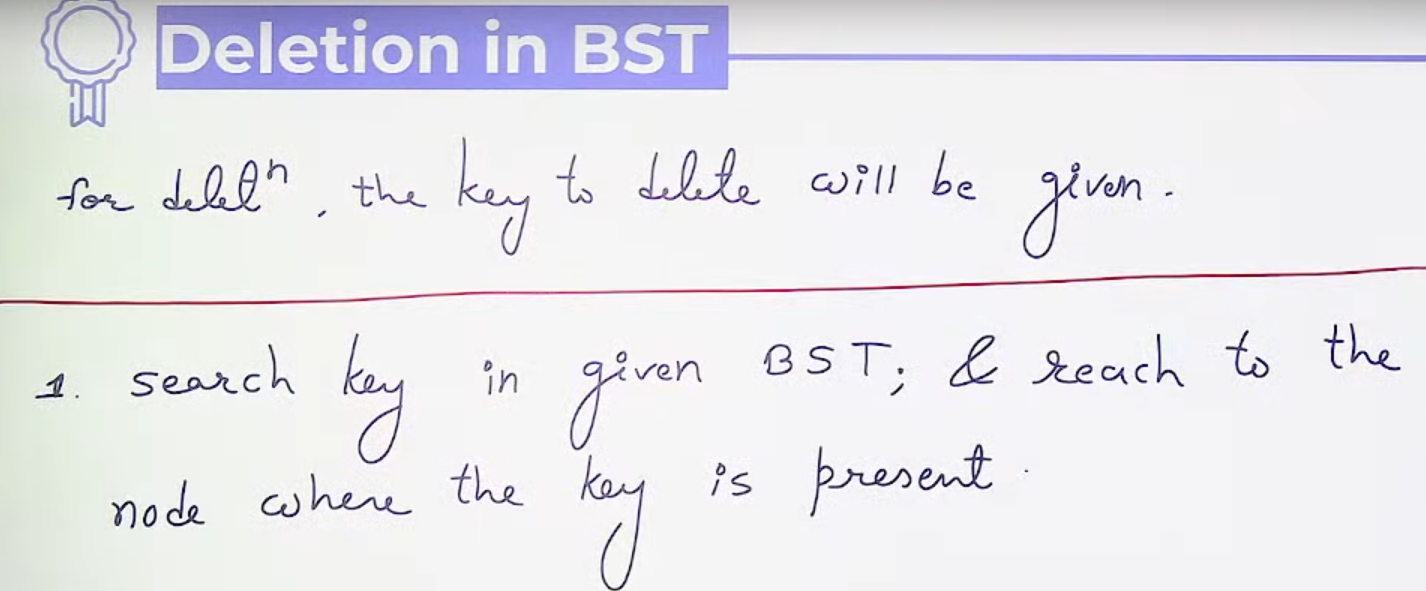 Deletion in BST
for deletⁿ, the key to delete will be given.
1. search key in given BST; & reach to the
node where the key is present.